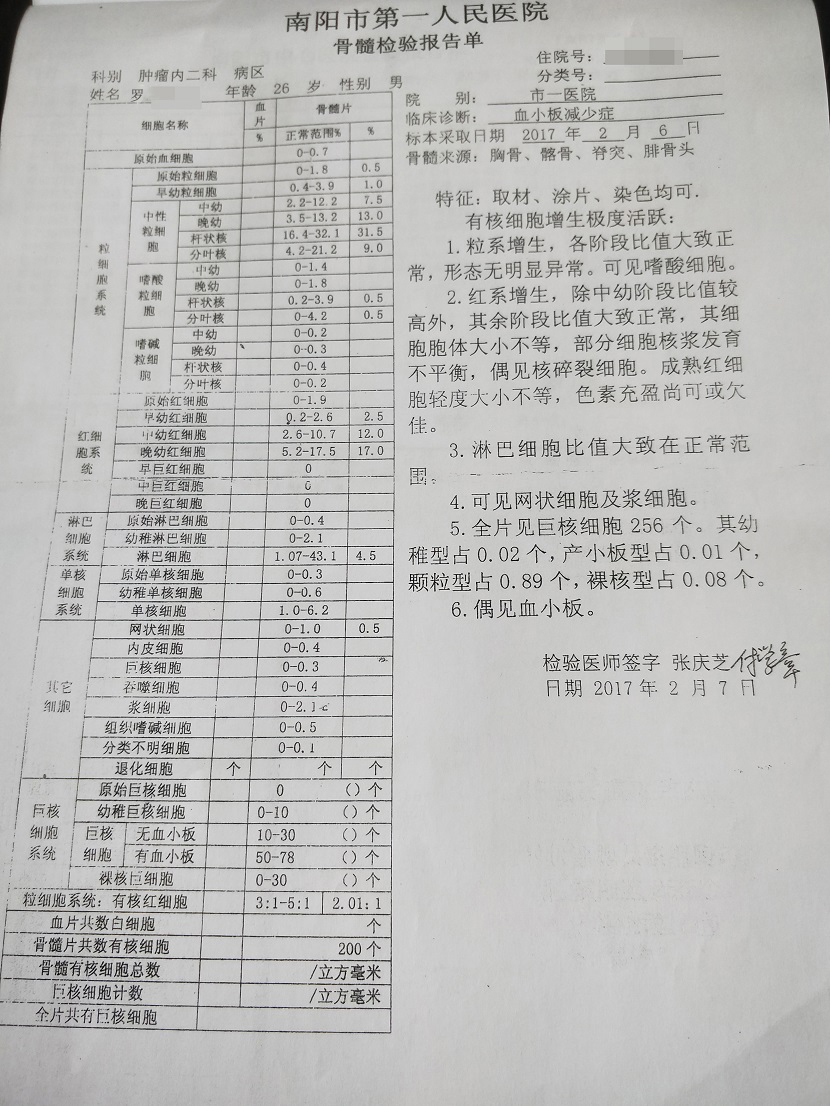 南阳市第一人民医院
骨髓检验报告单
住院号：
分类号：
科别 肿瘤内二科 病区
姓名 罗 年龄 26 岁 性别 男
院 别： 市一医院
临床诊断： 血小板减少症
标本采取日期 2017 年 2 月 6 日
骨髓来源：胸骨、髂骨、脊突、腓骨头
细胞名称 血片% 骨髓片
正常范围% %
原始血细胞 0-0.7
粒细胞系统
原始粒细胞 0-1.8 0.5
早幼粒细胞 0.4-3.9 1.0
中性粒细胞
中幼 2.2-12.2 7.5
晚幼 3.5-13.2 13.0
杆状核 16.4-32.1 31.5
分叶核 4.2-21.2 9.0
嗜酸粒细胞
中幼 0-1.4
晚幼 0-1.8
杆状核 0.2-3.9 0.5
分叶核 0-4.2 0.5
嗜碱粒细胞
中幼 0-0.2
晚幼 0-0.3
杆状核 0-0.4
分叶核 0-0.2
红细胞系统
原始红细胞 0-1.9
早幼红细胞 0.2-2.6 2.5
中幼红细胞 2.6-10.7 12.0
晚幼红细胞 5.2-17.5 17.0
早巨红细胞 0
中巨红细胞 0
晚巨红细胞 0
淋巴细胞系统
原始淋巴细胞 0-0.4
幼稚淋巴细胞 0-2.1
淋巴细胞 1.07-43.1 4.5
单核细胞系统
原始单核细胞 0-0.3
幼稚单核细胞 0-0.6
单核细胞 1.0-6.2
其它细胞
网状细胞 0-1.0 0.5
内皮细胞 0-0.4
巨核细胞 0-0.3
吞噬细胞 0-0.4
浆细胞 0-2.1
组织嗜碱细胞 0-0.5
分类不明细胞 0-0.1
退化细胞 个 个 个
巨核细胞系统
原始巨核细胞 0 ()个
幼稚巨核细胞 0-10 ()个
巨核细胞
无血小板 10-30 ()个
有血小板 50-78 ()个
裸核巨细胞 0-30 ()个
粒细胞系统：有核红细胞 3:1-5:1 2.01:1
血片共数白细胞 个
骨髓片共数有核细胞 200个
骨髓有核细胞总数 /立方毫米
巨核细胞计数 /立方毫米
全片共有巨核细胞
特征：取材、涂片、染色均可.
有核细胞增生极度活跃：
1.粒系增生，各阶段比值大致正
常，形态无明显异常。可见嗜酸细胞。
2.红系增生，除中幼阶段比值较
高外，其余阶段比值大致正常，其细
胞胞体大小不等，部分细胞核浆发育
不平衡，偶见核碎裂细胞。成熟红细
胞轻度大小不等，色素充盈尚可或欠
佳。
3.淋巴细胞比值大致在正常范
围。
4.可见网状细胞及浆细胞。
5.全片见巨核细胞 256 个。其幼
稚型占 0.02 个，产小板型占 0.01 个，
颗粒型占 0.89 个，裸核型占 0.08 个。
6.偶见血小板。
检验医师签字 张庆芝
日期 2017 年 2 月 7 日